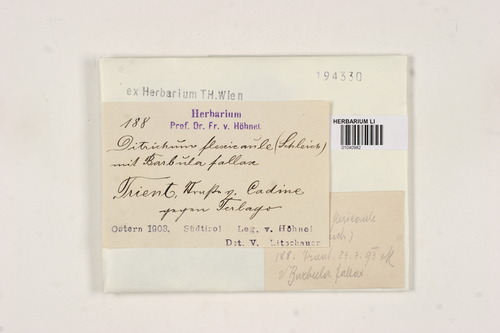 194330
ex Herbarium TH.Wien
HERBARIUM LI
Herbarium
188 Prof. Dr. Fr. v. Höhnel
Ditrichum flexicaule (Schleich)
mit Barbula fallax
Trient, Straße v. Cadine
gegen Terlago
Ostern 1903. Südtirol Leg. v. Höhnel
Det. V. Litschauer
flexicaule
188. Trient
v Barbula fallax